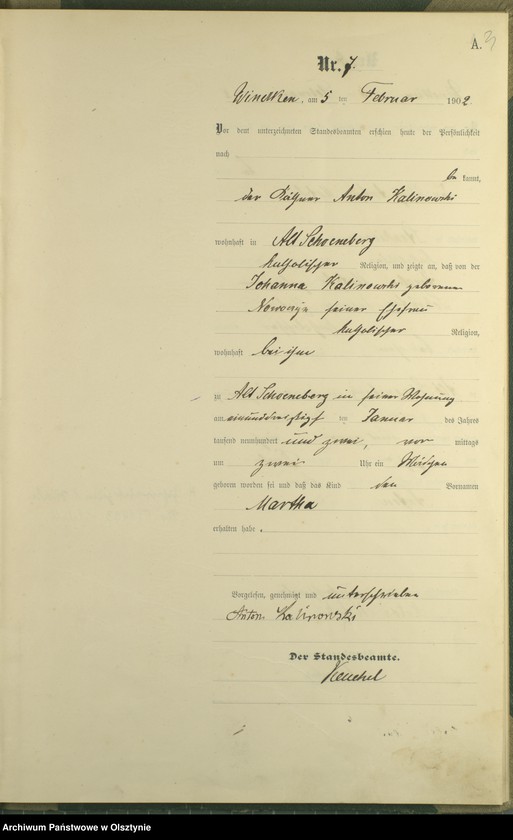 A. 3
Nr. 7.
Windken, am 5 ten Februar 1902.
Vor dem unterzeichneten Standesbeamten erschien heute der Persönlichkeit
nach
be kannt,
der Käthner Anton Kalinowski
wohnhaft in Alt Schoeneberg
katholischer Religion, und zeigte an, daß von der
Johanna Kalinowski geborenen
seiner Ehefrau
katholischer Religion,
wohnhaft bei ihm
zu Alt Schoeneberg in seiner Wohnung
am einunddreißigsten Januar des Jahres
tausend neunhundert und zwei, vor mittags
um zwei Uhr ein Mädchen
geboren worden sei und daß das Kind den Vornamen
Martha
erhalten habe.
Vorgelesen, genehmigt und unterschrieben
Anton Kalinowski
Der Standesbeamte.
Archiwum Państwowe w Olsztynie